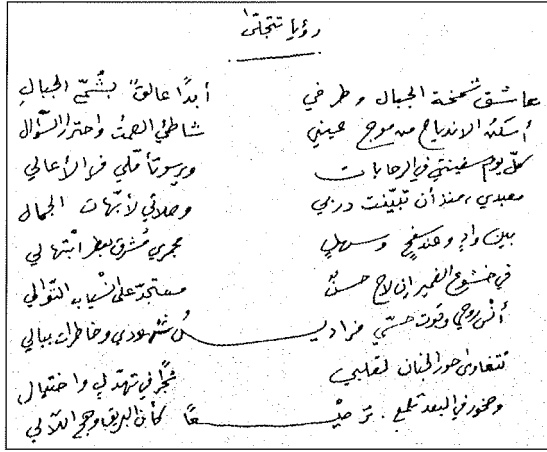 رؤيا تتجلّى
عاشق شمخة الجبال وطرفي أبدًا عالقٌ بشُمّخ الجبالِ
أسكنُ الاندياح من موج عيني شاطئ الصمتُ واحترار السؤال
كلّ يوم سفينتي في الرحابات ويرسو تأمّلي في الأعالي
معبدي، منذ أن تبيّنت دربي وصلاتي لأبّهات الجمال
بين وادٍ وعند سفحٍ وسهلٍ مشرق بعطر ابتهالي
في خشوع الضمير إن لاح حسنٌ مستجدّ على انسياب التوالي
أنس روحي وقوت حسّي فراديـسُ شهودي وخاطرات ببالي
تتغاوى حور الجنان لقلبي في تهدّلٍ واختيال
وصخور في البعد تلمع. ترصيـعًا كأن البريق وهج اللآلي